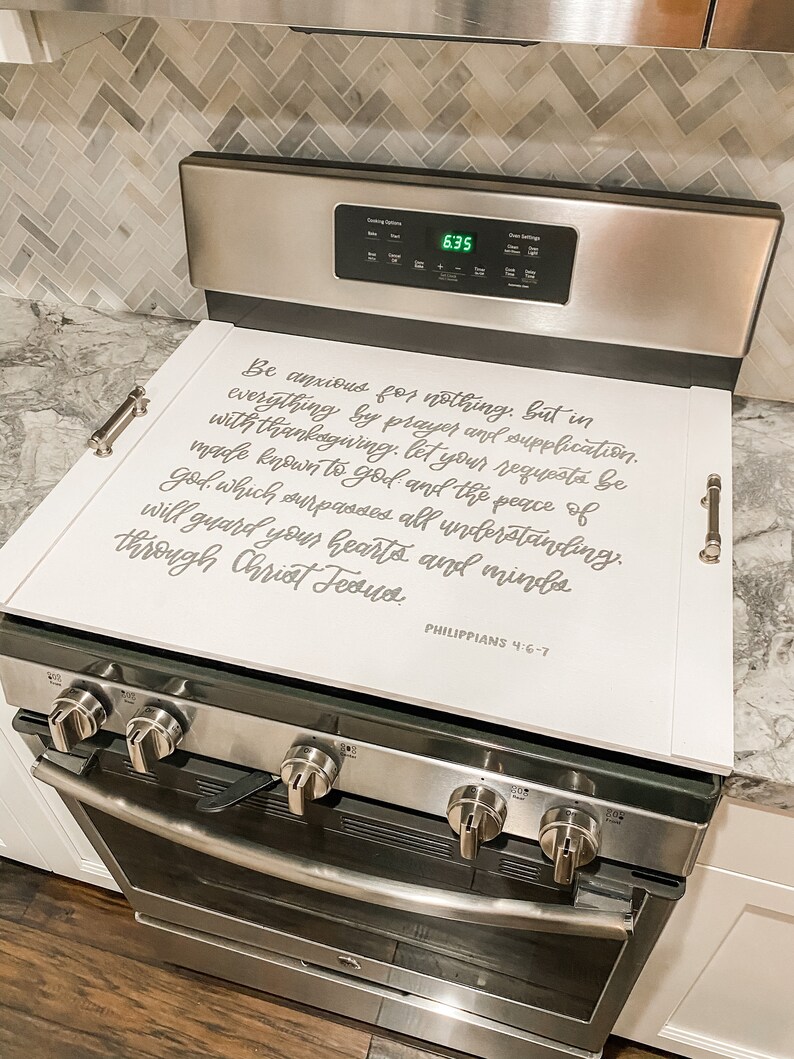 Cooking Options
Bake Start
Broil
Hi/Lo
Cancel
Off
Conv
Bake
+ −
Set Clock
6:35
Timer
On/Off
Oven Settings
Clean
Oven
Light
Cook
Time
Delay
Time
Automatic Oven
Be anxious for nothing, but in
everything by prayer and supplication,
with thanksgiving, let your requests be
made known to God; and the peace of
God, which surpasses all understanding,
will guard your hearts and minds
through Christ Jesus.
PHILIPPIANS 4:6-7
Rear
Center
Rear
Front